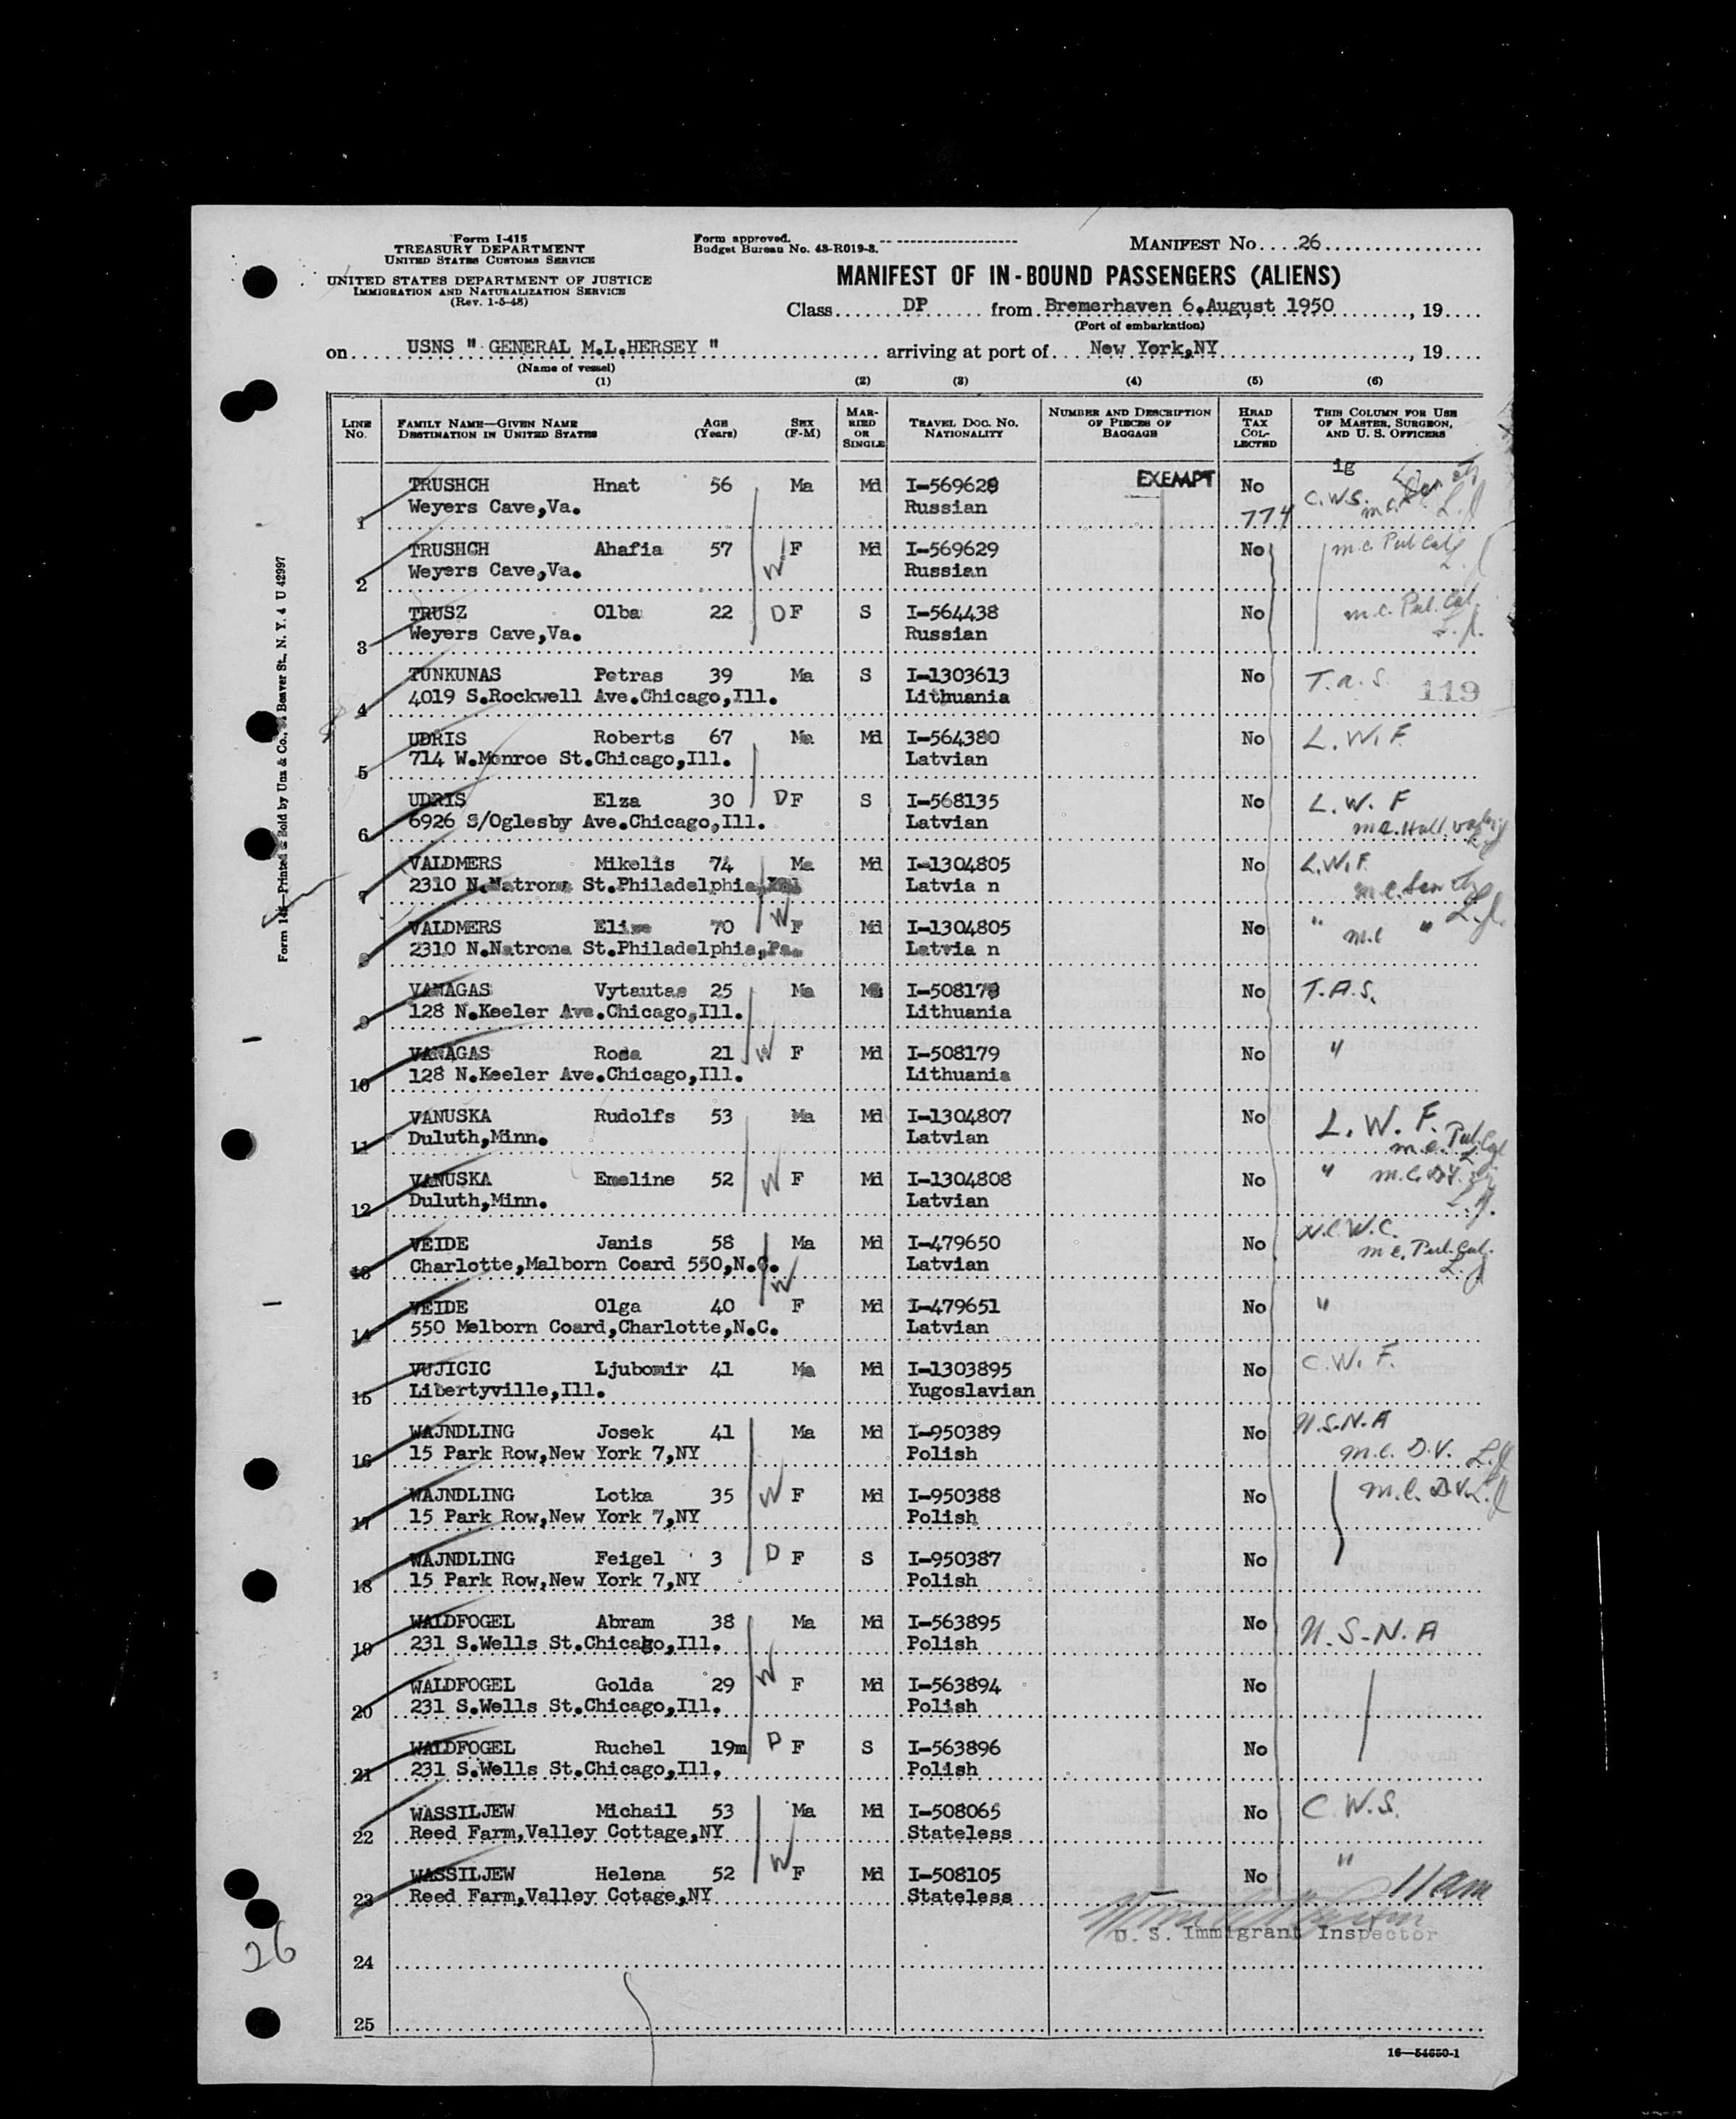 Form I-415
TREASURY DEPARTMENT
UNITED STATES CUSTOMS SERVICE
UNITED STATES DEPARTMENT OF JUSTICE
IMMIGRATION AND NATURALIZATION SERVICE
(Rev. 1-5-48)
Form approved.
Budget Bureau No. 43-R019-3.
MANIFEST No. 26
MANIFEST OF IN-BOUND PASSENGERS (ALIENS)
Class DP from Bremerhaven 6.August 1950, 19
(Port of embarkation)
on USNS " GENERAL M.L.HERSEY " arriving at port of New York,NY, 19
(Name of vessel)
(1) (2) (3) (4) (5) (6)
LINE No. FAMILY NAME—GIVEN NAME DESTINATION IN UNITED STATES AGE (Years) SEX (F-M) MARRIED OR SINGLE TRAVEL DOC. NO. NATIONALITY NUMBER AND DESCRIPTION OF PIECES OF BAGGAGE HEAD TAX COLLECTED THIS COLUMN FOR USE OF MASTER, SURGEON, AND U. S. OFFICERS
TRUSHCH Hnat 56 Ma Md I-569628 EXEMPT No C.W.S.
1 Weyers Cave,Va. Russian 774
TRUSHCH Ahafia 57 W F Md I-569629 No m.c. Pul Cal
2 Weyers Cave,Va. Russian
TRUSZ Olba 22 D F S I-564438 No m.c. Pul. Cal
3 Weyers Cave,Va. Russian
TUNKUNAS Petras 39 Ma S I-1303613 No T.a.S. 119
4 4019 S.Rockwell Ave.Chicago,Ill. Lithuania
UDRIS Roberts 67 Ma Md I-564380 No L.W.F.
5 714 W.Monroe St.Chicago,Ill. Latvian
UDRIS Elza 30 D F S I-568135 No L.W.F
6 6926 S/Oglesby Ave.Chicago,Ill. Latvian
VALDMERS Mikelis 74 Ma Md I-1304805 No L.W.F.
7 2310 N.Natrona St.Philadelphia Latvia n
VALDMERS Elize 70 W F Md I-1304805 No " m.c "
8 2310 N.Natrona St.Philadelphia,Pa. Latvia n
VANAGAS Vytautas 25 Ma Md I-508178 No T.A.S.
9 128 N.Keeler Ave.Chicago,Ill. Lithuania
VANAGAS Rosa 21 W F Md I-508179 No "
10 128 N.Keeler Ave.Chicago,Ill. Lithuania
VANUSKA Rudolfs 53 Ma Md I-1304807 No L.W.F.
11 Duluth,Minn. Latvian m.c. Pul. Cal
VANUSKA Emeline 52 W F Md I-1304808 No " m.c.
12 Duluth,Minn. Latvian
VEIDE Janis 58 Ma Md I-479650 No N.C.W.C.
13 Charlotte,Malborn Coard 550,N.C. W Latvian m.c. Pul. Cal.
VEIDE Olga 40 F Md I-479651 No "
14 550 Melborn Coard,Charlotte,N.C. Latvian
VUJICIC Ljubomir 41 Ma Md I-1303895 No C.W.F.
15 Libertyville,Ill. Yugoslavian
WAJNDLING Josek 41 Ma Md I-950389 No U.S.N.A
16 15 Park Row,New York 7,NY Polish m.c. D.V.
WAJNDLING Lotka 35 W F Md I-950388 No m.c. D.V.
17 15 Park Row,New York 7,NY Polish
WAJNDLING Feigel 3 D F S I-950387 No
18 15 Park Row,New York 7,NY Polish
WALDFOGEL Abram 38 Ma Md I-563895 No U.S.N.A
19 231 S.Wells St.Chicago,Ill. Polish
WALDFOGEL Golda 29 W F Md I-563894 No
20 231 S.Wells St.Chicago,Ill. Polish
WALDFOGEL Ruchel 19m D F S I-563896 No
21 231 S.Wells St.Chicago,Ill. Polish
WASSILJEW Michail 53 Ma Md I-508065 No C.W.S.
22 Reed Farm,Valley Cottage,NY Stateless
WASSILJEW Helena 52 W F Md I-508105 No " 11am
23 Reed Farm,Valley Cotage,NY Stateless
U. S. Immigrant Inspector
24
25
26
16—54650-1